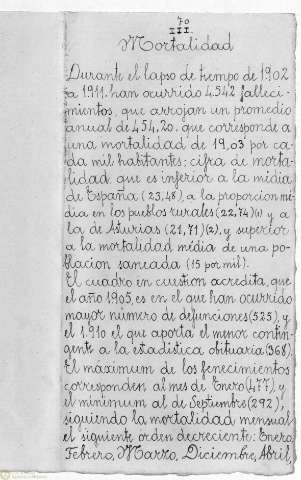 70
III.
Mortalidad
Durante el lapso de tiempo de 1902
a 1911. han ocurrido 4.542 falleci-
mientos, que arrojan un promedio
anual de 454,20. que corresponde a
una mortalidad de 19,03 por ca-
da mil habitantes; cifra de morta-
lidad que es inferior a la média
de España (23,48), a la proporcion mé-
dia en los pueblos rurales (22,74)(1) y a
la de Asturias (21,71)(2), y superior
a la mortalidad média de una po-
blacion saneada (15 por mil).
El cuadro en cuestion acredita, que
el año 1905, es en el que han ocurrido
mayor número de defunciones (525), y
el 1.910 el que aporta el menor contin-
gente a la estadistica obituaria (368).
El maximum de los fenecimientos
corresponden al mes de Enero (477), y
el minimum al de Septumbre (292),
siguiendo la mortalidad mensual
el siguiente orden decreciente: Enero,
Febrero, Marzo, Diciembre, Abril,